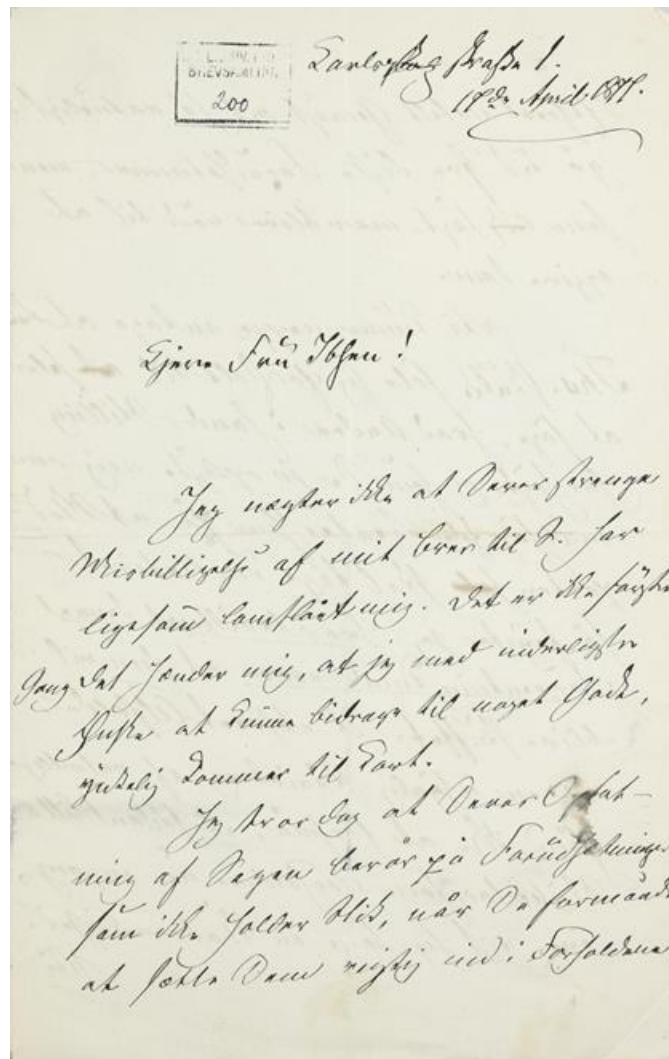 BREVSAMLING
200
Karls straße 1.
17de April 1877.
Kjere Frü Ibsen!
Jeg nægter ikke at Deres strenge
Misbilligelse af mit brev til S. har
ligesom lamslået mig. Det er ikke første
Gang det hænder mig, at jeg med inderligste
Ønske at kunne bidrage til noget Godt,
ynkelig kommer til kort.
Jeg tror dog at Deres Opfat-
ning af Sagen berör på Forudsætninger
som ikke holder Stik, når De formåede
at sætte Dem rigtig ind i Forholdene